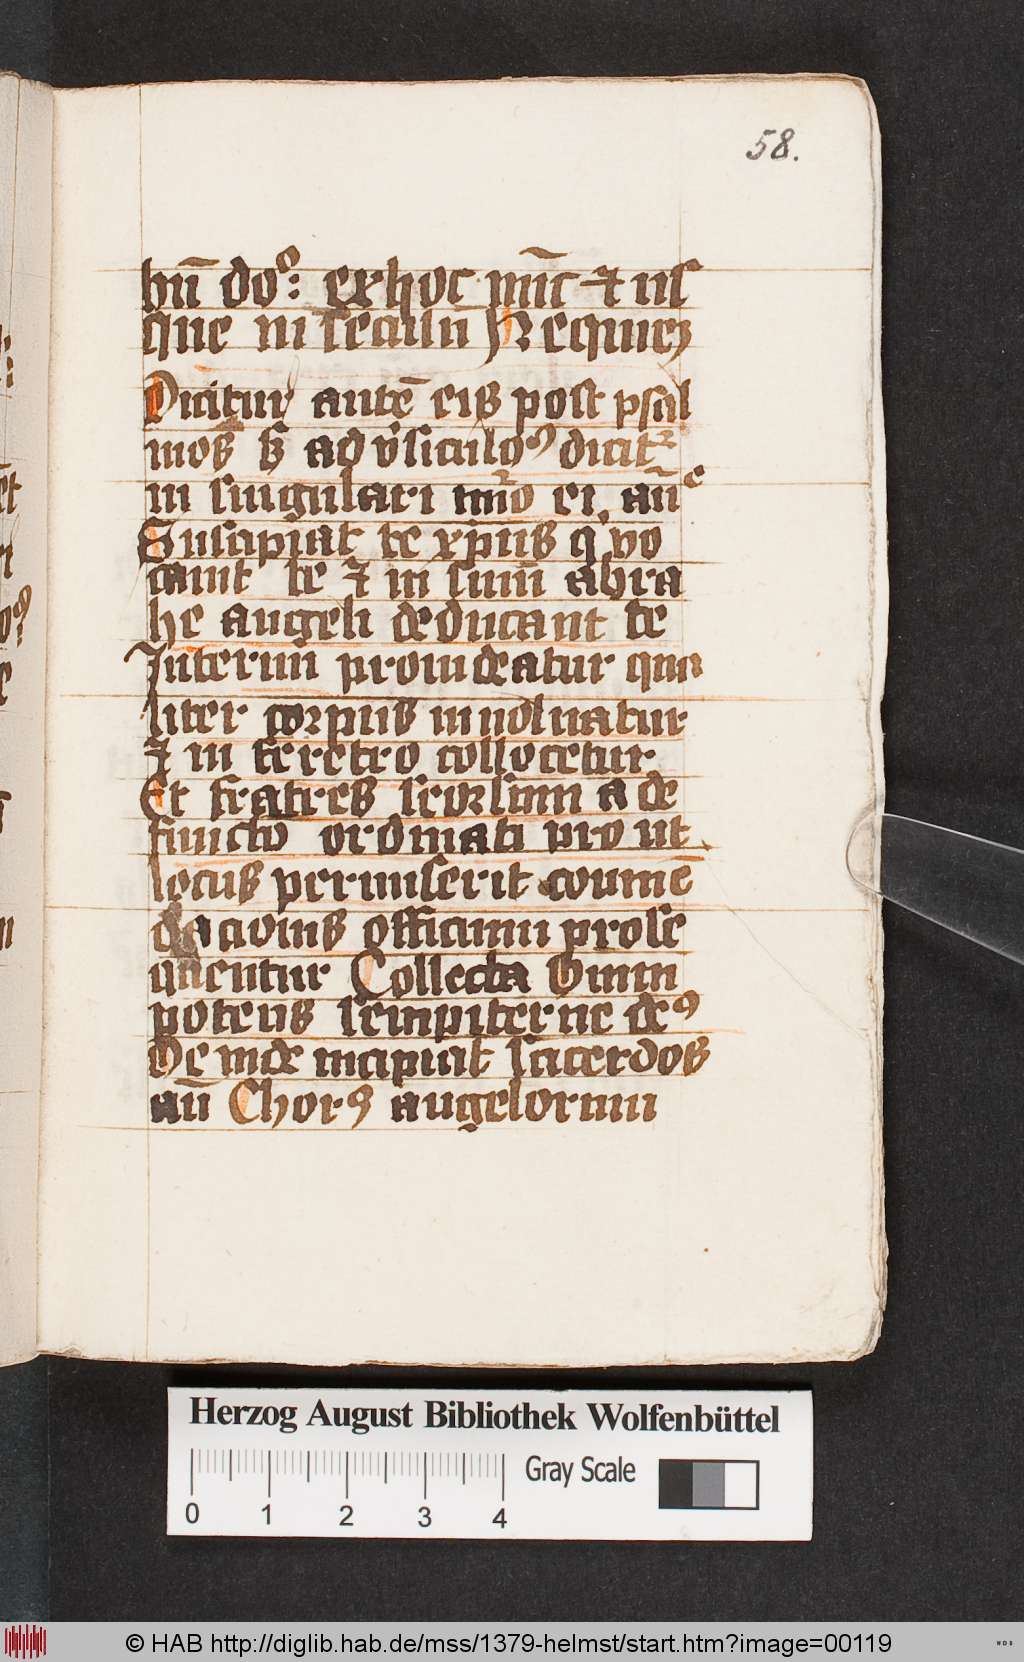 58.
hū doꝰ: ex hoc nūc ⁊ us
que in seculū Requiez
Dicitur autē eis post psal
mos sȝ ad v̉siculꝯ dicitᷣ
in singulari nūo ei, an̄e
Suscipiat te xpus q vo
cauit te ⁊ in sinū abra
he angeli deducant te
Interim prouideatur qua
liter corpus inuoluatur
⁊ in feretro collocetur
Et fratres seorsum a de
functo ordinati pro ut
locus permiserit commē
dacionis officium prose
quentur Collecta Omni
potens sempiterne deꝰ
Deinde incipiat sacerdos
an̄ Chorꝰ angelorum
Herzog August Bibliothek Wolfenbüttel
0 1 2 3 4 Gray Scale
© HAB http://diglib.hab.de/mss/1379-helmst/start.htm?image=00119